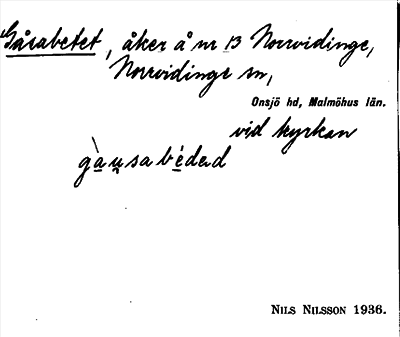 Gåsabetet, åker å nr 13 Norrvidinge,
Norrvidinge sn,
Onsjö hd, Malmöhus län.
vid kyrkan
gàu̯sabéded
NILS NILSSON 1936.